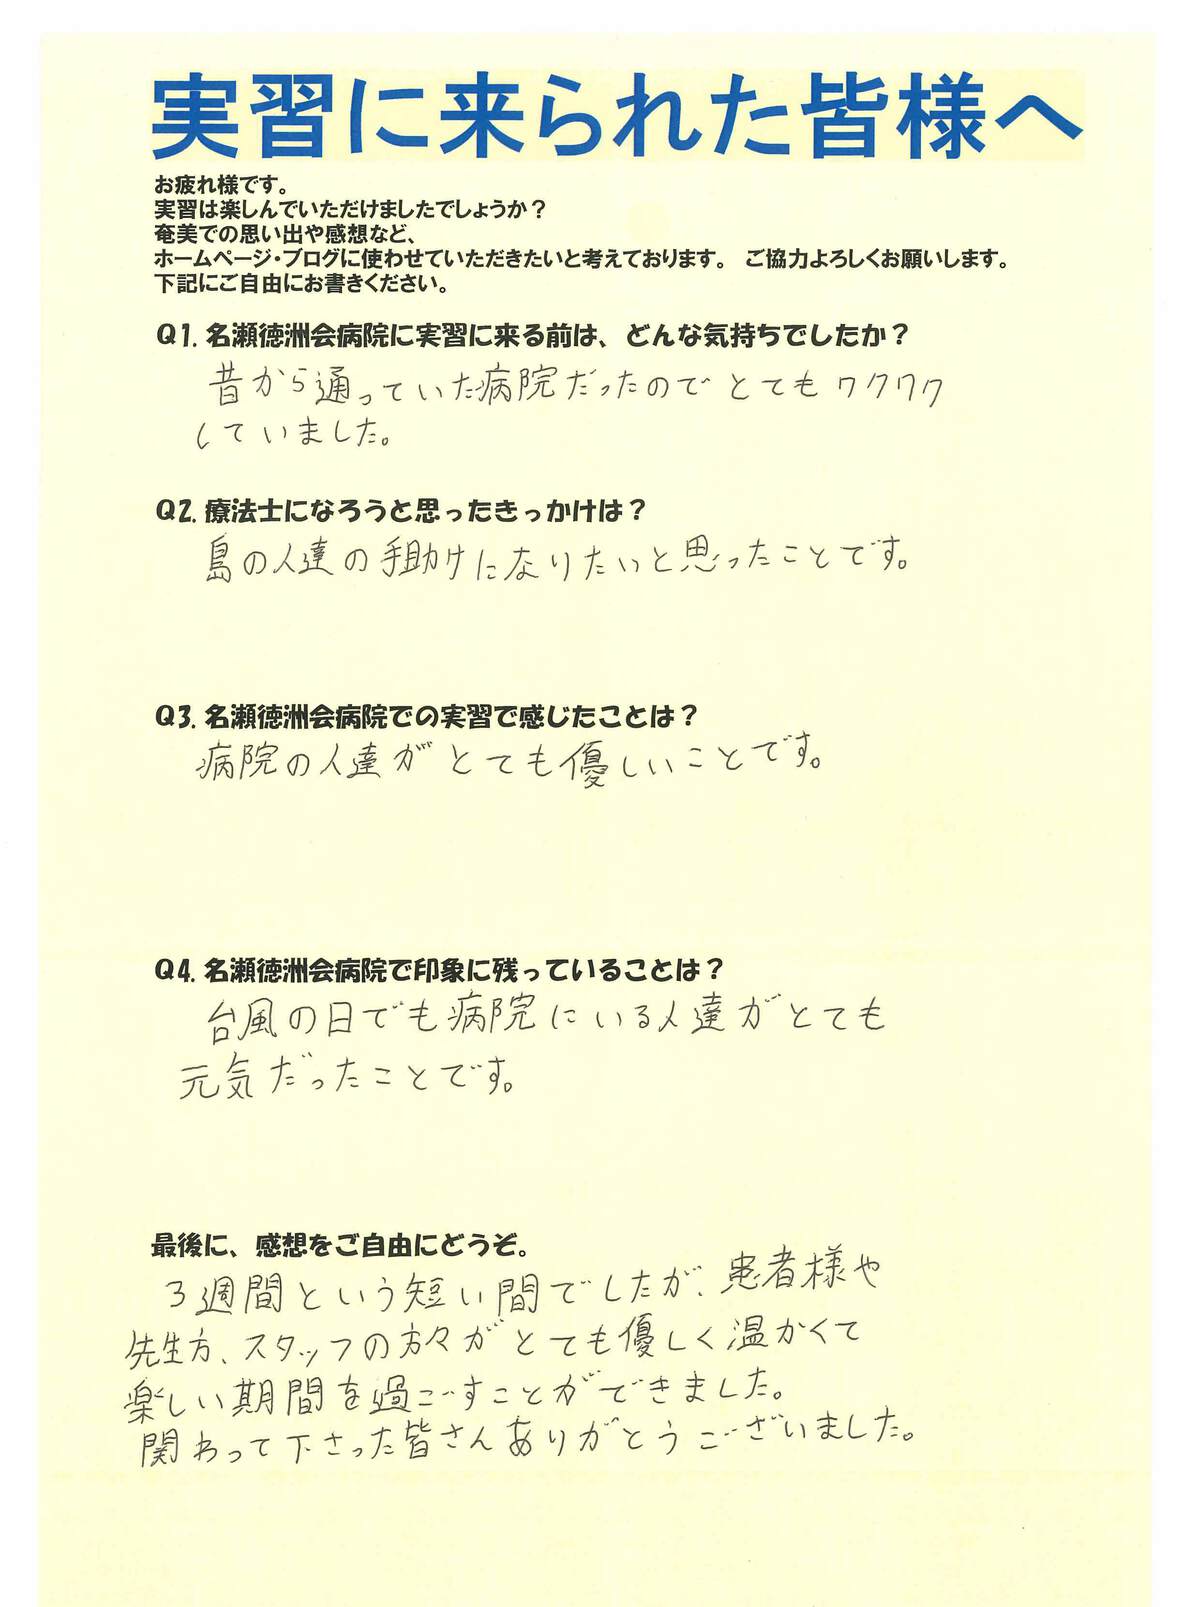 実習に来られた皆様へ
お疲れ様です。
実習は楽しんでいただけましたでしょうか？
奄美での思い出や感想など、
ホームページ・ブログに使わせていただきたいと考えております。 ご協力よろしくお願いします。
下記にご自由にお書きください。
Q1. 名瀬徳洲会病院に実習に来る前は、どんな気持ちでしたか？
昔から通っていた病院だったのでとてもワクワク
していました。
Q2. 療法士になろうと思ったきっかけは？
島の人達の手助けになりたいと思ったことです。
Q3. 名瀬徳洲会病院での実習で感じたことは？
病院の人達がとても優しいことです。
Q4. 名瀬徳洲会病院で印象に残っていることは？
台風の日でも病院にいる人達がとても
元気だったことです。
最後に、感想をご自由にどうぞ。
3週間という短い間でしたが、患者様や
先生方、スタッフの方々がとても優しく温かくて
楽しい期間を過ごすことができました。
関わって下さった皆さんありがとうございました。